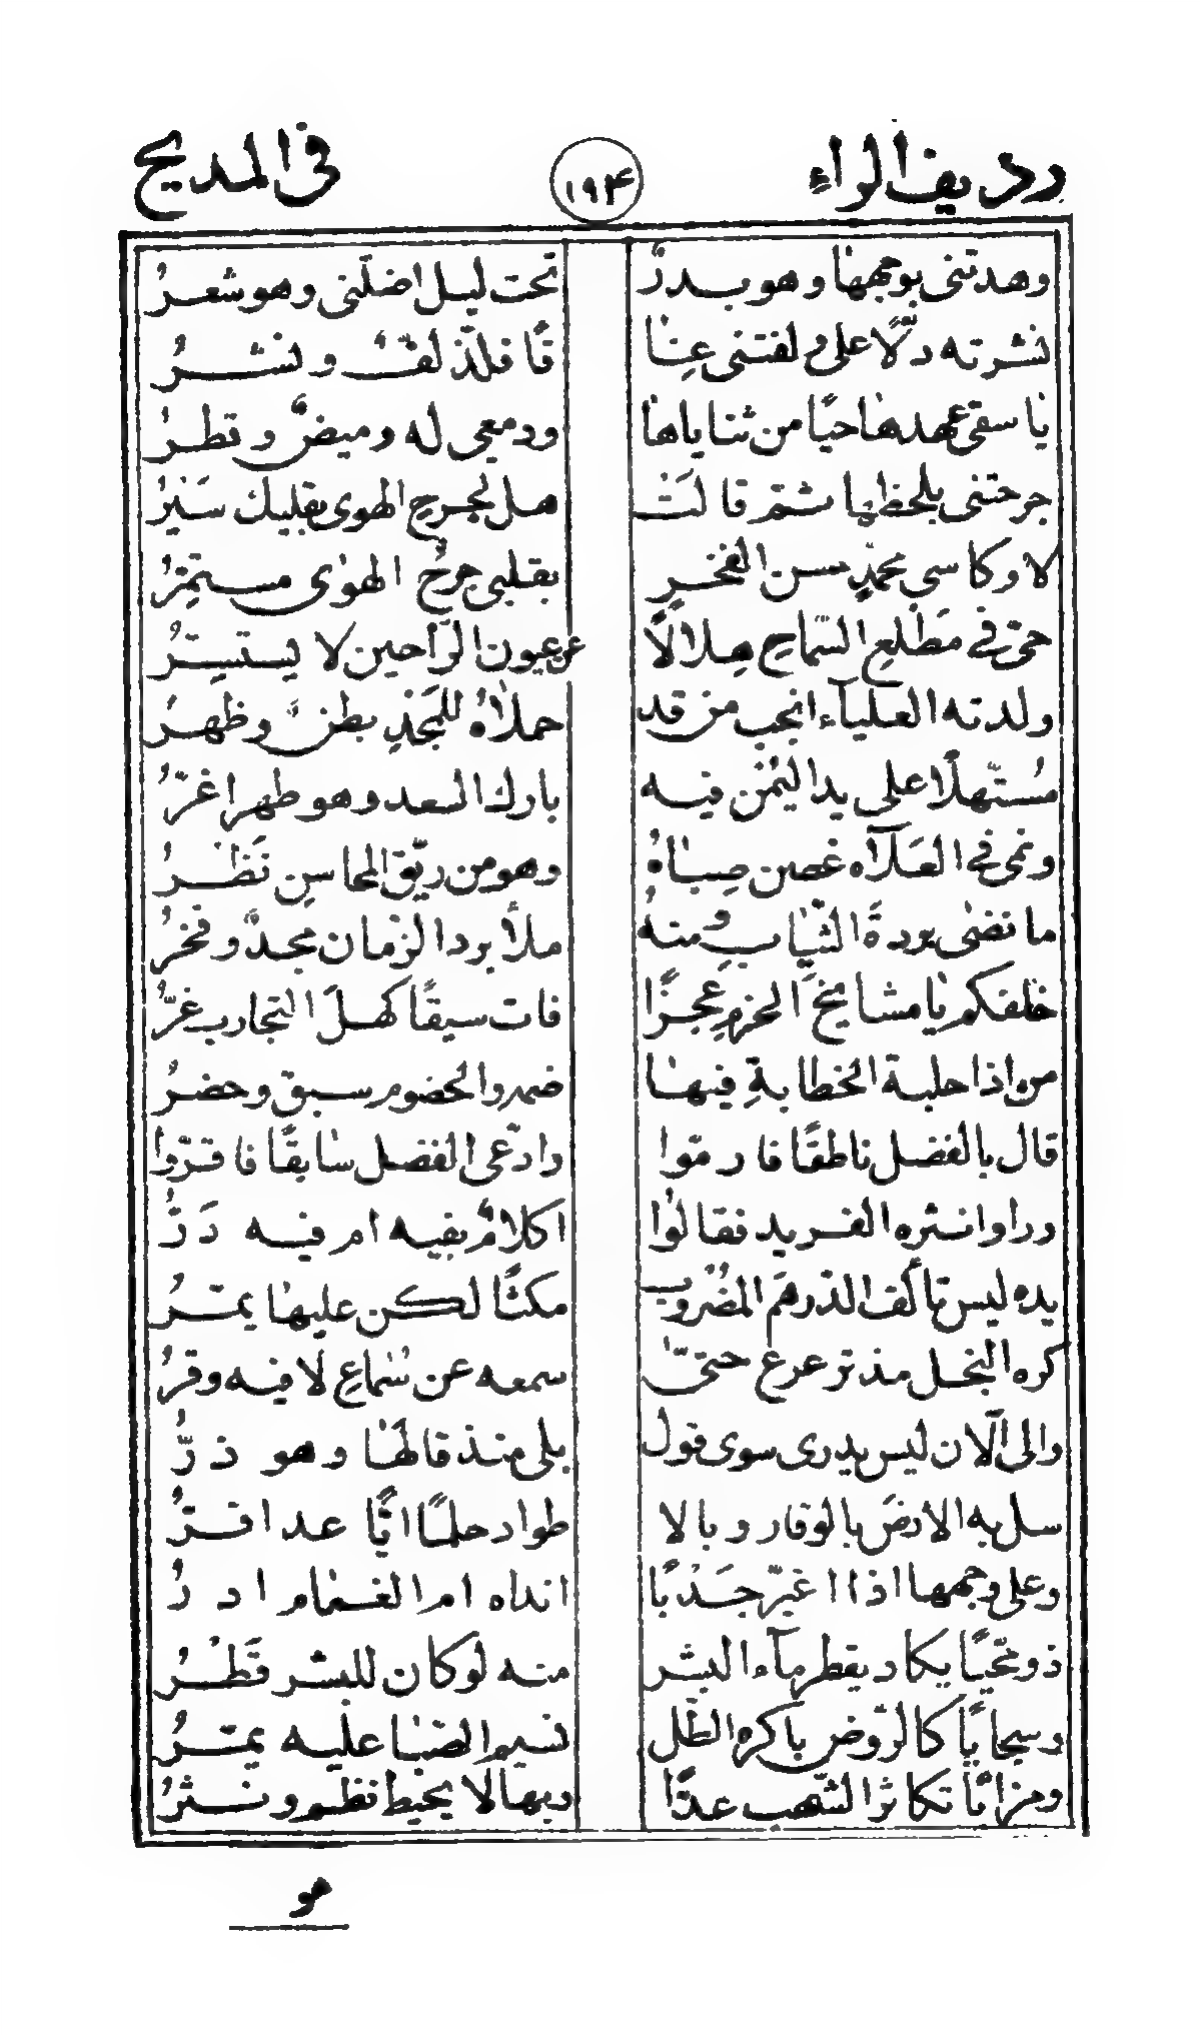 ردیف الراء ١٩۴ فی المدیح
وهدتنى بوجهها وهو بدرٌ تحت ليل اضلّنى وهو شعرُ
نشرته دلًّا على ولفتنى عِنا قًا فلذّ لفٌّ ونشرُ
يا سقى عهدها حيًا من ثناياها ودمعى له وميضٌ وقطرُ
جرحتنى بلحظها ثمّ قالَتْ هل لجرح الهوى بقلبك سَبْرُ
لا وكاسى محمّدٍ حسن الفخر بقلبى جرحُ الهوى مستمِرُّ
حىّ فى مَطْلعِ السّماحِ هِلالًا عن عيون الرّاجين لا يستسِرُّ
ولدته العلياء انجب من قد حملاهُ للمجدِ بطنٌ وظهرُ
مُستهلًّا على يد اليُمْن فيه بارك السعد وهو طهر اغرُّ
ونمى فى العَلآء غصن صِباهُ وهو من ريّق المحاسنِ نَضْرُ
ما نضى بردةَ الشّبابِ ومنهُ ملأ برد الزمان مجدٌ وفخرُ
خلفكم يا مشايخَ الحزمِ عَجزًا فات سبقًا كهلَ التجارب غرُّ
من اذا حلبة الخطابةِ فيها ضمروا لخصوم سبق وحضرُ
قال بالفضل ناطقًا فارمّوا وادّعى الفضل سابقًا فاقرّوا
وراوا نثره الفريد فقالوا اكلامٌ بفيه ام فيه دَرُّ
يده ليس تألف الدّرهَم المضْرُوب مكثًا لكن عليها يمرُّ
كره البخل مذ ترعرع حتىّ سمعه عن سَماعِ لا فيه وقرُ
والى الآن ليس يدرى سوى قول بلى منذ قالَها وهو ذرُّ
سل به الارضَ بالوقار وبالا طواد حلمًا ايًّا عدا قرُّ
وعلى وجهها اذا اغبرّ جَدْبًا انداه ام الغمام ادرُّ
ذو محيّا يكاد يقطر مآء البشر منه لو كان للبشر قَطْرُ
وسجايًا كالرّوض باكره الطّل نسيم الصّبا عليه يمرُّ
ومزايًا تكاثر الشّهب عدًّا وبها لا يحيط نظم ونثرُ
هو